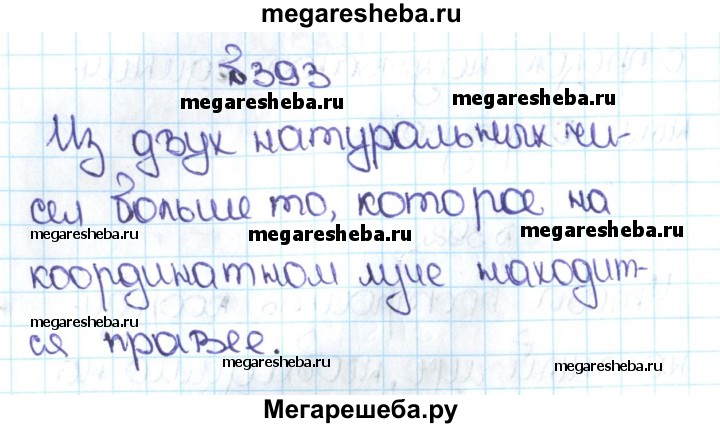 megaresheba.ru
№393
megaresheba.ru megaresheba.ru
Из двух натуральных чи-
сел больше то, которое на
megaresheba.ru megaresheba.ru megaresheba.ru
координатном луче находит-
megaresheba.ru
ся правее.
megaresheba.ru megaresheba.ru
Мегарешеба.ру